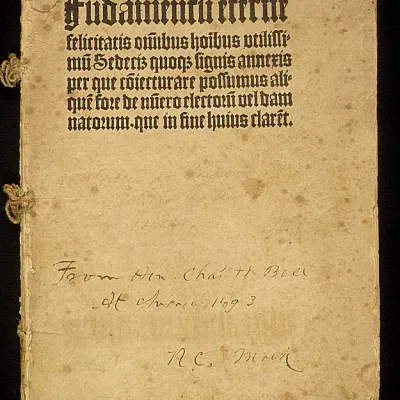 Fūdamentū eterne
felicitatis om̄ibus hoībus vtilissi
mū Sedecīz quoqz signis annexis
per que cōiecturare possumus ali
quē fore de nūero electorū vel dam
natorum. que in fine huius clarēt.
From Hon. Chas H. Bell
At 1893
N. C.